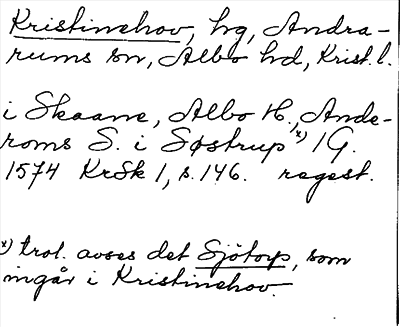 Kristinehov, hg, Andra-
rums sn, Albo hd, Krist. l.
i Skaane, Albo H., Ande-
roms S. i Søstrup x) 1 G.
1574 KrSk 1, s. 146. regest.
x) trol. avses det Sjötorp, som
ingår i Kristinehov.